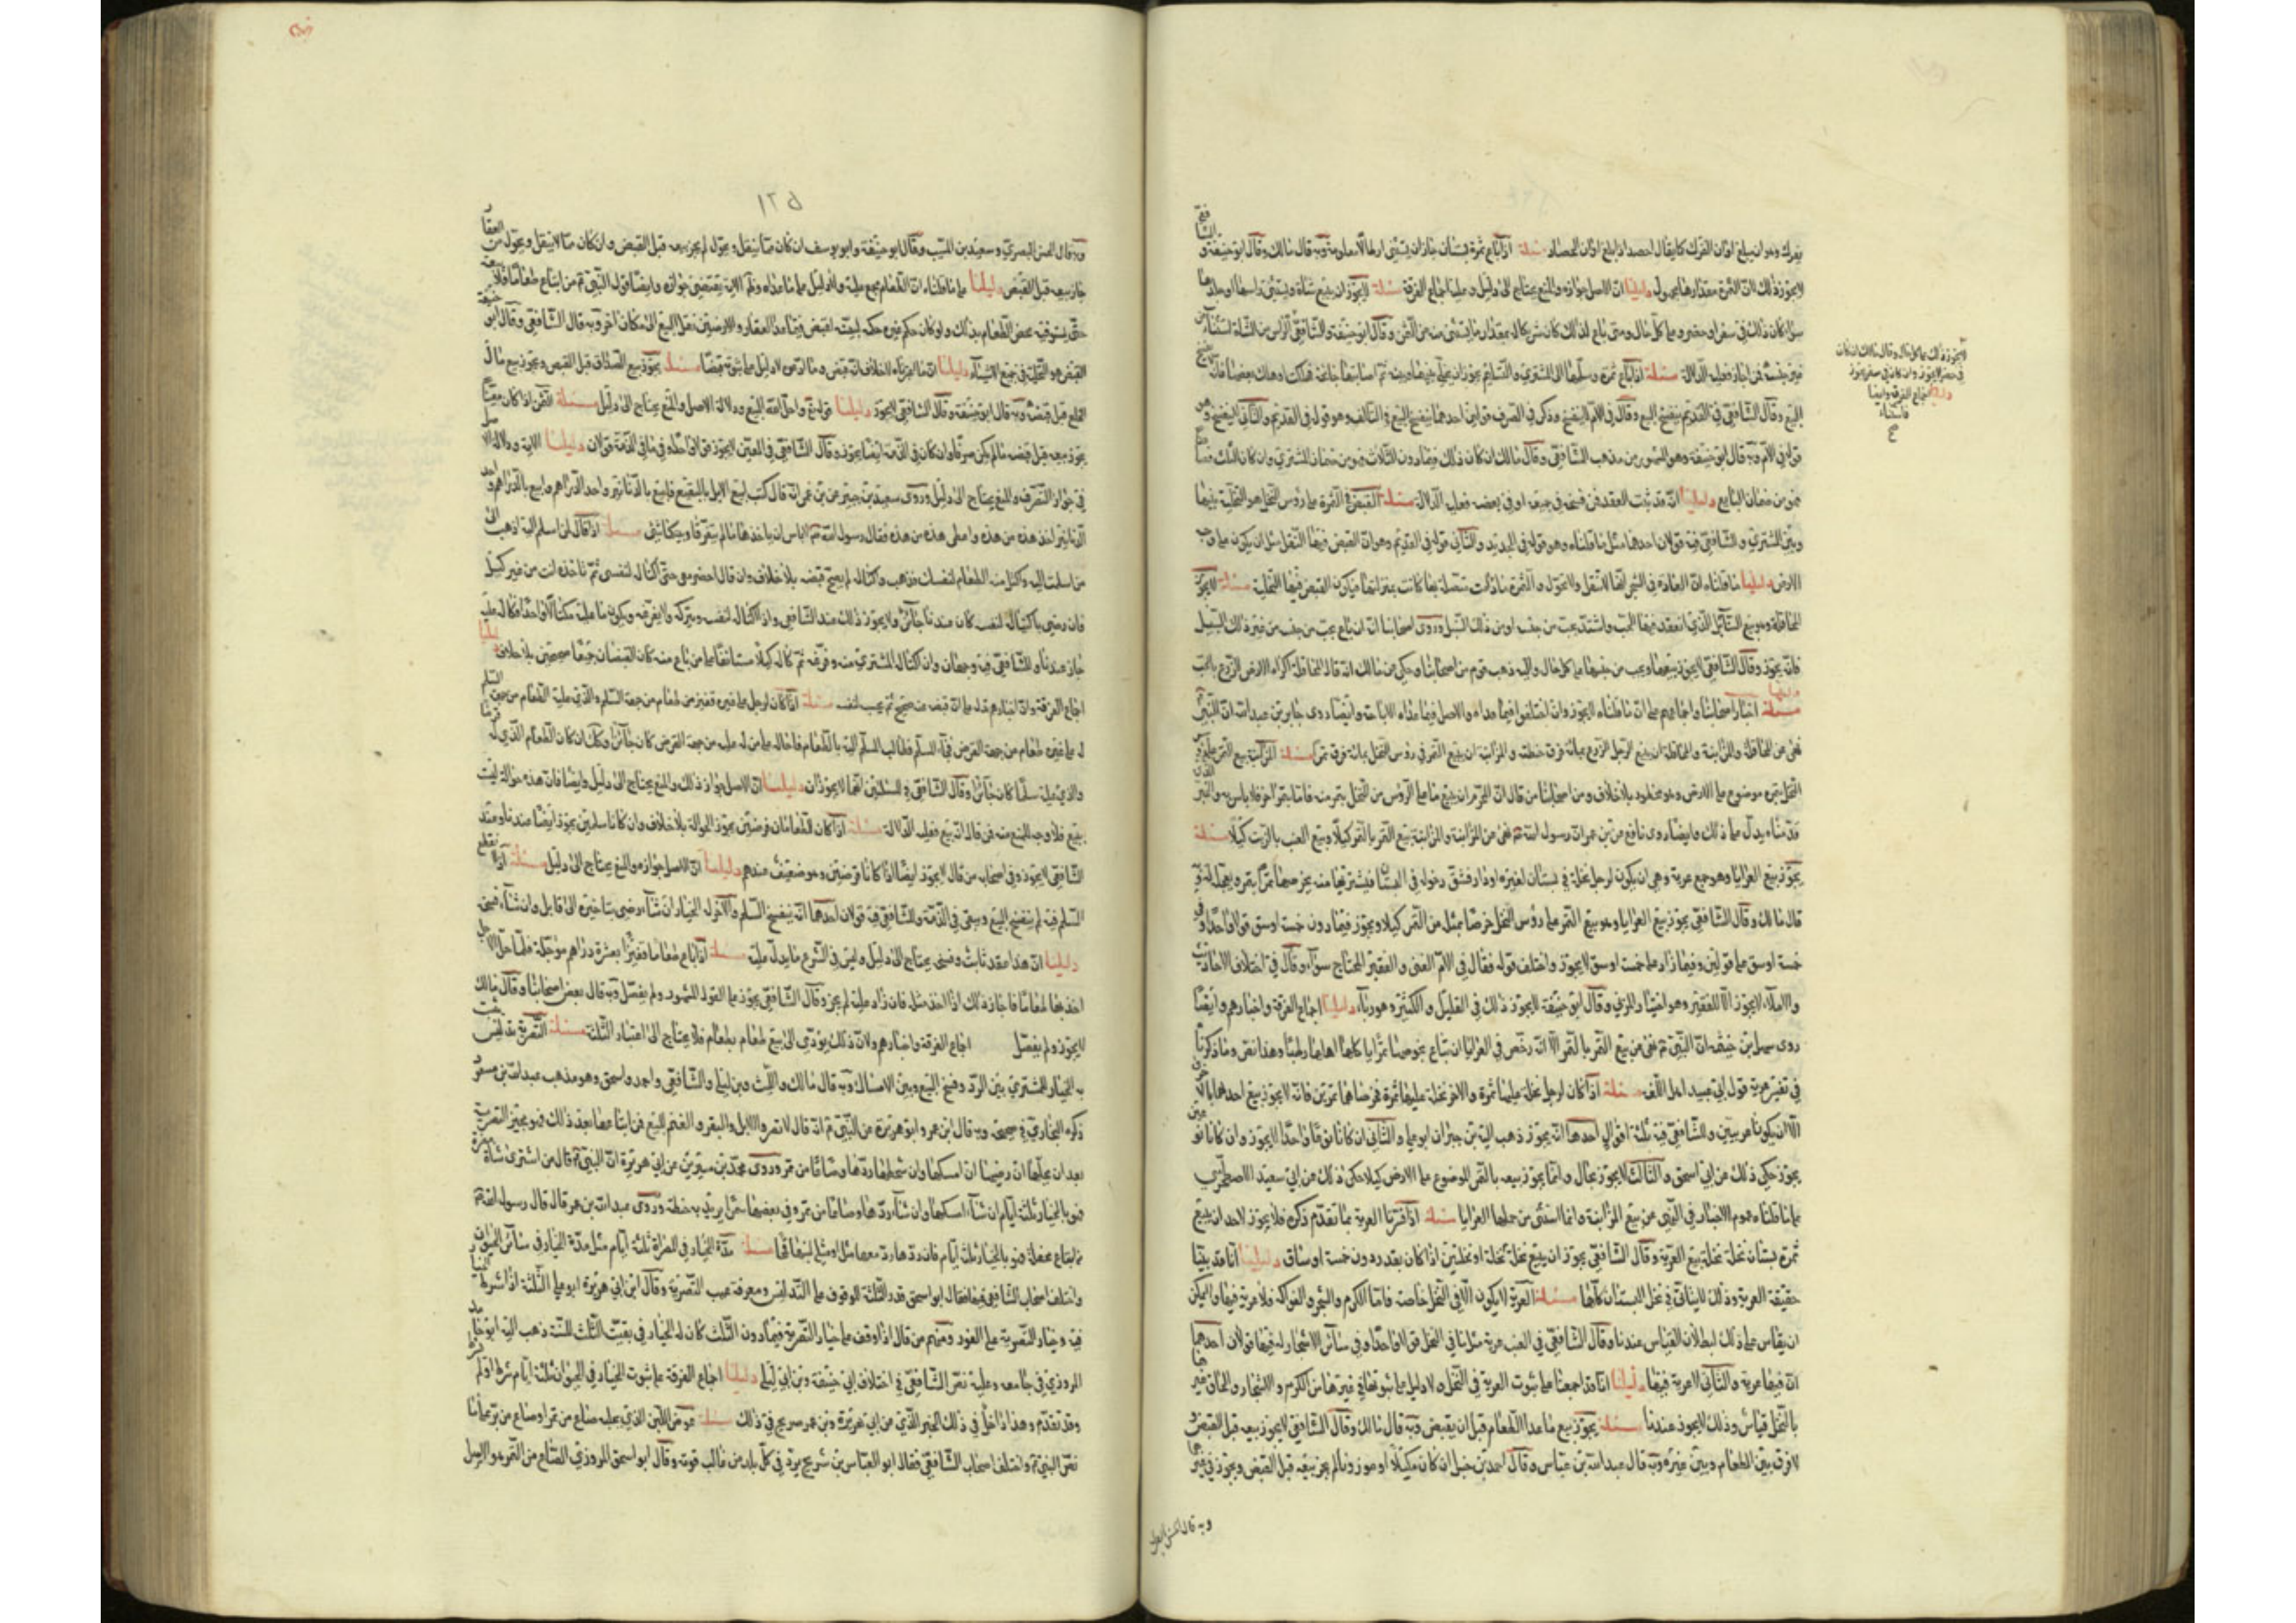 يفرك وهو ان يبلغ اوان الفرك كما يقال احصد اذا بلغ اوان الحصاد مسئلة اذا باع ثمرة بستان جاز ان يستثنى ارطالا معلومة وبه قال مالك وقال ابو حنيفة و الشا فعي
لا يجوز ذلك لان الثمرة مقدارها مجهول دليلنا ان الاصل جوازه والمنع يحتاج الى دليل وعليه اجماع الفرقة مسئلة لا يجوز ان يبيع شاة ويستثنى راسها او جلدها
سواء كان ذلك في سفر او حضر وعلى كل حال ومتى باع كذلك كان شريكا له بمقدار ما يستثنى منه من الثمن وقال ابو حنيفة والشافعي
لا يجوز ذلك على كل حال وقال مالك ان كان
في حضر لا يجوز وان كان في سفر يجوز
دليلنا اجماع الفرقة وايضا
فعليه الدلالة مسئلة اذا باع ثمرة وسلمها الى المشتري والتسليم يجوز ان يخلي بينها وبينه ثم اصابتها جائحة فهلكت او هلك بعضها
البيع وقال الشافعي في القديم ينفسخ البيع وقال في الام لا ينفسخ وذكر في الصرف قولين احدهما ينفسخ البيع في التالف وهو قوله في القديم والثاني لا ينفسخ وهو
قوله في الام وبه قال ابو حنيفة وهو المشهور من مذهب الشافعي وقال مالك ان كان ذلك فيما دون الثلث فهو من ضمان المشتري وان كان الثلث فصا
فهو من ضمان البايع دليلنا انه قد ثبت العقد فمن فسخه في جميعه او في بعضه فعليه الدلالة مسئلة القبض في الثمرة على رؤس النخل هو التخلية بينها
وبين المشتري وللشافعي فيه قولان احدهما مثل ما قلناه وهو قوله في الجديد والثاني قوله في القديم وهو ان القبض فيها النقل مثل ان يكون على وجه
الارض دليلنا ما قلناه ان العادة في الشجر انها لا تنقل ولا تحول والثمرة ما دامت متصلة بها كانت بمنزلتها فيكون القبض فيها التخلية مسئلة لا يجوز
المحاقلة وهو بيع السنابل التي انعقد فيها الحب واشتد بحب من جنسه او من ذلك السنبل وروى اصحابنا انه ان باع بحب من جنسه من غير ذلك السنبل
فانه يجوز وقال الشافعي لا يجوز بيعها بحب من جنسها على كل حال واليه ذهب قوم من اصحابنا وحكي عن مالك انه قال المحاقلة اكراء الارض للزرع بالحب
دليلنا اخبار اصحابنا واجماعهم على ان ما قلناه لا يجوز وان اختلفوا فيما عداه والاصل فيما عداه الاباحة وايضا روى جابر بن عبد الله ان النبي
نهى عن المحاقلة والمزابنة والمحاقلة ان يبيع الرجل الزرع بمائة فرق حنطة والمزابنة ان يبيع التمر في رؤس النخل بمائة فرق تمر مسئلة المزابنة بيع التمر على رؤس
النخل بتمر موضوع على الارض وهو محظور بلا خلاف ومن اصحابنا من قال ان المحرم ان يبيع ما على الرؤس من النخل بتمر منه فاما بتمر اخر فلا باس به والخبر الذي
قدمناه يدل على ذلك وايضا روى نافع عن بن عمر ان رسول الله نهى عن المزابنة والمزابنة بيع الثمر بالتمر كيلا وبيع العنب بالزبيب كيلا مسئلة
يجوز بيع العرايا وهو جمع عرية وهي ان يكون لرجل نخلة في بستان لغيره او دار فيشق دخوله في البستان فيشتريها منه بخرصها تمرا بتمر ويعجل له وبه
قال مالك وقال الشافعي يجوز بيع العرايا وهو بيع التمر على رؤس النخل خرصا بمثله من التمر كيلا ويجوز فيما دون خمسة اوسق قولا واحدا وفي
خمسة اوسق على قولين وفيما زاد على خمسة اوسق لا يجوز واختلف قوله فقال في الام الغني والفقير المحتاج سواء وقال في اختلاف الاحاديث
والاملاء لا يجوز الا للفقير وهو اختيار المزني وقال ابو حنيفة لا يجوز ذلك في القليل والكثير وهو ربا دليلنا اجماع الفرقة واخبارهم وايضا
روى سهل بن ابي حثمة ان النبي نهى عن بيع الثمر بالتمر الا انه رخص في العرايا ان تباع بخرصها تمرا ياكلها اهلها رطبا وهذا نص وما ذكرناه
في تفسير عرية قول ابي عبيد اهل اللغة مسئلة اذا كان لرجل نخلة عليها ثمرة والاخر نخلة عليها ثمرة فخرصاهما تمرين فانه لا يجوز بيع احدهما بالاخرى
الا ان يكونا عريتين وللشافعي فيه ثلثة اقوال احدها انه يجوز ذهب اليه بن خيران ابو علي والثاني ان كانا نوعا واحدا لا يجوز وان كانا نوعين
يجوز حكي ذلك عن ابي اسحق والثالث لا يجوز بحال وانما يجوز بيعه بالتمر الموضوع على الارض كيلا حكى ذلك عن ابي سعيد الاصطخري
ما قلناه عموم الاخبار في النهي عن بيع المزابنة وانما استثنى من جملتها العرايا مسئلة اذا قررنا العرية بما تقدم ذكره فلا يجوز لاحد ان يبيع
ثمرة بستان نخلة نخلة ببيع العرية وقال الشافعي يجوز ان يبيع نخلة نخلة او نخلتين اذا كان بعقد دون خمسة اوساق دليلنا انا قد بينا
حقيقة العرية وذلك لا يتاتى في نخل البستان كلها مسئلة العرية لا يكون الا في النخل خاصة فاما الكرم والشجر والفواكه فلا عرية فيها ولا يمكن
ان يقاس على ذلك لبطلان القياس عندنا وقال الشافعي في العنب عرية مثل ما في النخل قولا واحدا وفي سائر الاشجار له فيها قولان احدهما
ان فيها عرية والثاني لا عرية فيها دليلنا انا قد اجمعنا على ثبوت العرية في النخل ولا دليل على ثبوتها في غيرها من الكرم والاشجار والحاق غيرها
بالنخل قياس وذلك لا يجوز عندنا مسئلة يجوز بيع ما عدا الطعام قبل ان يقبض وبه قال مالك وقال الشافعي لا يجوز بيعه قبل القبض و
لا فرق بين الطعام وبين غيره وبه قال عبد الله بن عباس وقال احمد بن حنبل ان كان مكيلا او موزونا لم يجز بيعه قبل القبض ويجوز في غيرهما
وبه قال الحسن البصري
١٢٥
وبه قال الحسن البصري وسعيد بن المسيب وقال ابو حنيفة وابو يوسف ان كان مما ينقل ويحول لم يجز بيعه قبل القبض وان كان مما لا ينقل ويحول من العقار
جاز بيعه قبل القبض دليلنا على ما قلناه ان الطعام مجمع عليه ولا دليل على ما عداه وظاهر الاية يقتضي جوازه وايضا قول النبي من ابتاع طعاما فلا يبيعه
حتى يستوفيه فخص الطعام بذلك ولو كان حكم غيره حكمه لبينه مسئلة القبض فيما عدا العقار والارضين نقل المبيع الى مكان اخر وبه قال الشافعي وقال ابو حنيفة
القبض هو التخلية في جميع الاشياء دليلنا ان ما اعتبرناه لا خلاف انه قبض وما ادعوه لا دليل على ثبوته قبضا مسئلة يجوز بيع الصداق قبل القبض ويجوز بيع مال
الخلع قبل قبضه وبه قال ابو حنيفة وقال الشافعي لا يجوز دليلنا قوله تع واحل الله البيع ودلالة الاصل والمنع يحتاج الى دليل مسئلة الثمن اذا كان معينا
يجوز بيعه قبل قبضه ما لم يكن صرفا وان كان في الذمة ايضا يجوز وقال الشافعي في المعين لا يجوز قولا واحدا وفي ما في الذمة قولان دليلنا الاية ودلالة الاصل
في جواز التصرف والمنع يحتاج الى دليل وروى سعيد بن جبير عن بن عمر انه قال كنت ابيع الابل بالبقيع فابيع بالدنانير واخذ الدراهم وابيع بالدراهم واخذ
الدنانير اخذ هذه من هذه واعطي هذه من هذه فقال رسول الله لا باس ان ياخذها ما لم يتفرقا وبينكما شيء مسئلة اذا قال لمن اسلم اليه اذهب الى
من اسلمت اليه واكتل منه الطعام لنفسك فذهب واكتاله لم يصح قبضه بلا خلاف وان قال احضر معي حتى اكتاله لنفسي ثم تاخذه انت من غير كيل
فان رضي باكتياله لنفسه كان عندنا جائزا ولا يجوز ذلك عند الشافعي وان اكتال لنفسه ويتركه ولا يفرغه ويكون ما عليه مكتالا واحدا فكاله عليه
جاز عندنا وللشافعي فيه وجهان وان اكتال المشتري منه وفرغه ثم كاله كيلا مستانفا على من باع منه كان القبضان جميعا صحيحين بلا خلاف دليلنا
اجماع الفرقة وان اخبارهم تدل على انه قبضه صحيح ثم يحسب لنفسه مسئلة اذا كان لرجل على غيره قفيز من طعام من جهة السلم والذي عليه الطعام من جهة السلم
له على غيره طعام من جهة القرض فجاء المسلم فطالب المسلم اليه بالطعام فاحاله على من له عليه من جهة القرض كان جائزا وكذلك ان كان الطعام الذي له قرضا
والذي عليه سلما كان جائزا وقال الشافعي في المسئلتين انهما لا يجوزان دليلنا ان الاصل جواز ذلك والمنع يحتاج الى دليل وايضا فان هذه حوالة ليست
ببيع فلا وجه للمنع منه فمن قال انه بيع فعليه الدلالة مسئلة اذا كان الطعامان قرضين يجوز الحوالة بلا خلاف وان كانا سلمين يجوز ايضا عندنا وعند
الشافعي لا يجوز وفي اصحابه من قال لا يجوز ايضا اذا كانا قرضين وهو ضعيف عندهم دليلنا ان الاصل جوازه والمنع يحتاج الى دليل مسئلة اذا انقطع
السلم فيه لم ينفسخ البيع ويبقى في الذمة وللشافعي فيه قولان احدهما انه ينفسخ السلم والاخر له الخيار ان شاء رضي بتاخيره الى قابل وان شاء فسخه
دليلنا ان هذا عقد ثابت وفسخه يحتاج الى دليل وليس في الشرع ما يدل عليه مسئلة اذا باع طعاما قفيزا بعشرة دراهم مؤجلة فلما حل الاجل
اخذ بها طعاما فاجاز ذلك اذا اخذ مثله فان زاد عليه لم يجز وقال الشافعي يجوز على القول المشهور ولم يفصل وبه قال بعض اصحابنا وقال مالك
لا يجوز ولم يفصل اجماع الفرقة واخبارهم ولان ذلك يؤدي الى بيع طعام بطعام فلا يحتاج الى اعتبار الثلثة مسئلة التصرية تدليس يثبت
به الخيار للمشتري بين الرد وفسخ البيع وبين الامساك وبه قال مالك والليث وبن ابي ليلى والشافعي واحمد واسحق وهو مذهب عبد الله بن مسعود
ذكره البخاري في صحيحه وبه قال ابن عمر وابو هريرة عن النبي انه قال لا تصروا الابل والبقر والغنم للبيع فمن ابتاعها بعد ذلك فهو بخير النظرين
بعد ان يحلبها ان رضيها امسكها وان سخطها ردها وصاعا من تمر وروى محمد بن سيرين عن ابي هريرة ان النبي قال من اشترى شاة مصراة
فهو بالخيار ثلثة ايام ان شاء امسكها وان شاء ردها وصاعا من تمر وفي بعضها تمرا يريد به حنطة وروى عبد الله بن عمر قال قال رسول الله
من ابتاع محفلة فهو بالخيار ثلثة ايام فان ردها رد معها مثل او مثلي لبنها قمحا مسئلة مدة الخيار في المصراة ثلثة ايام مثل مدة الخيار في سائر الحيوان
واختلف اصحاب الشافعي فيها فقال ابو اسحق قدر الثلثة للوقوف على التدليس ومعرفة عيب التصرية وقال ابن ابي هريرة ابو علي الثلثة اذا شرط الخيار
فيه وخيار التصرية على الفور ومنهم من قال اذا وقف على خيار التصرية فيما دون الثلث كان له الخيار في بقية الثلث للسنة ذهب اليه ابو حامد
المروذي في جامعه وعليه نص الشافعي في اختلاف ابي حنيفة وبن ابي ليلى دليلنا اجماع الفرقة على ثبوت الخيار في الحيوان ثلثة ايام شرط او لم
وقد تقدم وهذا داخل في ذلك الخبر الذي عن ابي هريرة وبن عمر صريح في ذلك مسئلة عوض اللبن الذي يحلبه صاع من تمر او صاع من بر على ما
نص النبي واختلف اصحاب الشافعي فقال ابو العباس بن شريح يرد في كل بلد من غالب قوته وقال ابو اسحق المروزي الصاع من التمر هو الاصل